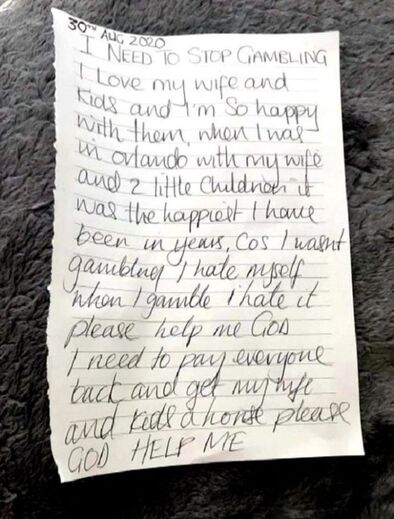 30TH AUG 2020
I NEED TO STOP GAMBLING
I Love my wife and
kids and I'm so happy
with them, when I was
in orlando with my wife
and 2 little children it
was the happiest I have
been in years, cos I wasnt
gambling I hate myself
when I gamble i hate it
please help me GOD
I need to pay everyone
back and get my wife
and kids a horse please
GOD HELP ME